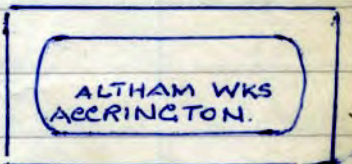 ALTHAM WKS
ACCRINGTON.